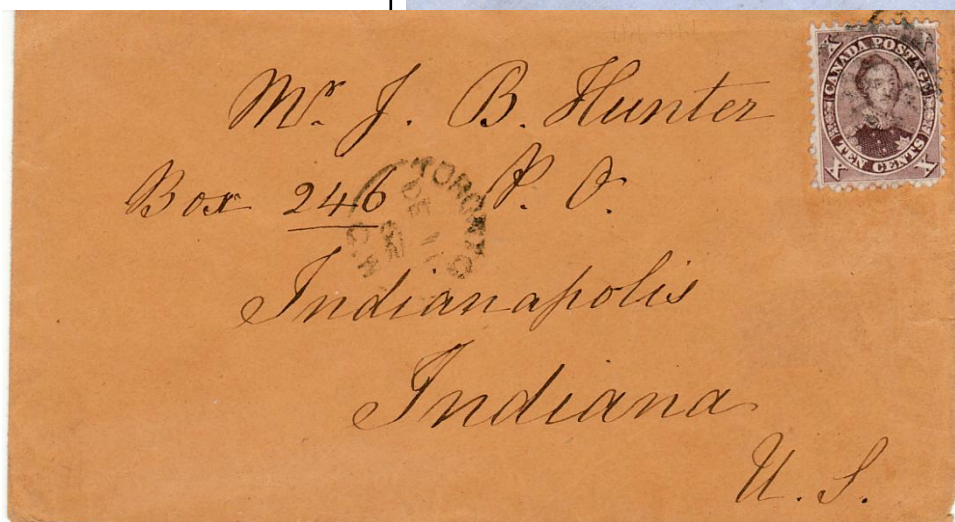 CANADA POSTAGE
TEN CENTS
X X X X
Mr. J. B. Hunter
Box 246 P. O.
TORONTO
DE 11
C.W
Indianapolis
Indiana
U. S.